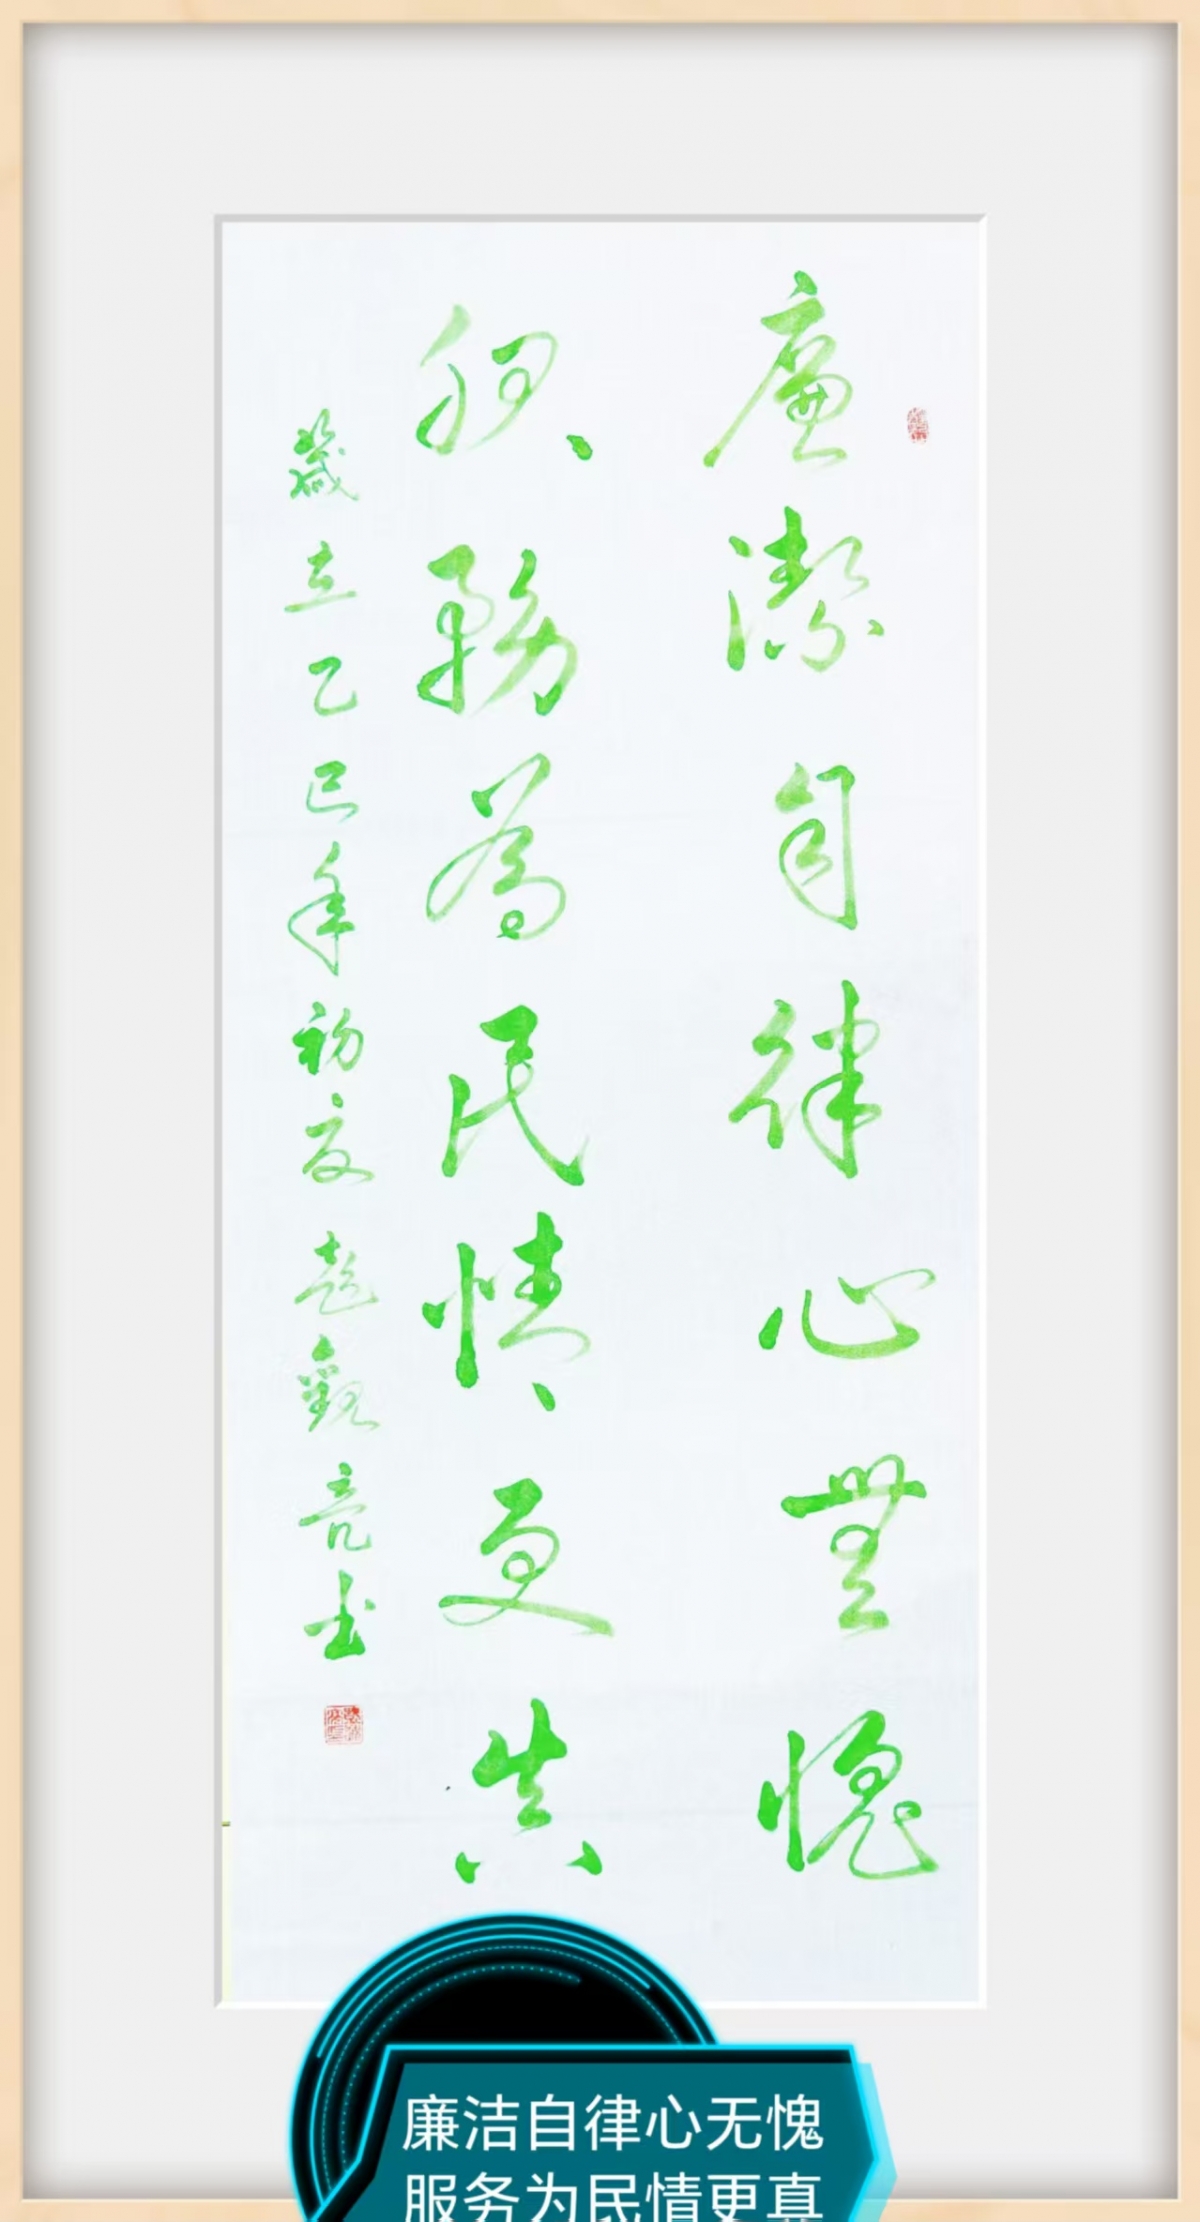 廉潔自律心無愧
服務為民情更真
歲在乙巳年初夏趙觀亮书
廉洁自律心无愧
服务为民情更真